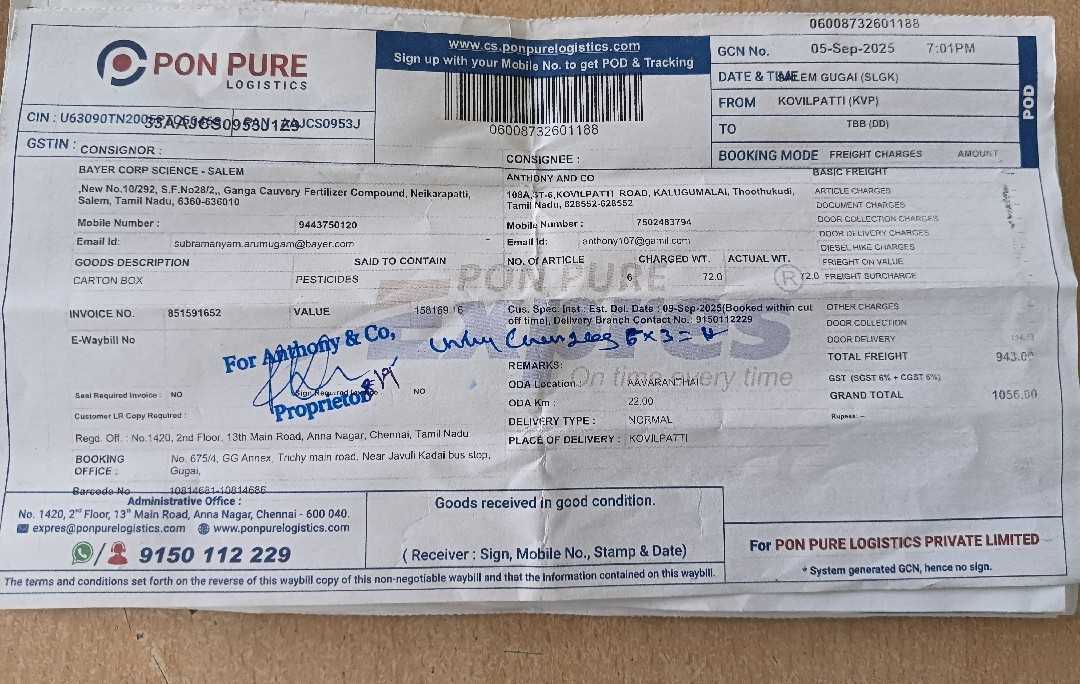 06008732601188
PON PURE
LOGISTICS
www.cs.ponpurelogistics.com
Sign up with your Mobile No. to get POD & Tracking
06008732601188
GCN No. 05-Sep-2025 7:01PM
DATE & TIME SALEM GUGAI (SLGK)
FROM KOVILPATTI (KVP)
TO TBB (DD)
BOOKING MODE FREIGHT CHARGES AMOUNT
POD
CIN : PAN : AAJCS0953J
33AAJCS0953J1Z9
GSTIN : CONSIGNOR :
BAYER CORP SCIENCE - SALEM
,New No.10/292, S.F.No28/2,, Ganga Cauvery Fertilizer Compound, Neikarapatti,
Salem, Tamil Nadu, 6360-636010
Mobile Number : 9443750120
Email Id: subramanyam.arumugam@bayer.com
GOODS DESCRIPTION SAID TO CONTAIN
CARTON BOX PESTICIDES
CONSIGNEE :
ANTHONY AND CO
108A,3T-6,KOVILPATTI ROAD, KALUGUMALAI, Thoothukudi,
Tamil Nadu, 628552-628552
Mobile Number : 7502483794
Email Id: anthony107@gamil.com
NO. Of ARTICLE CHARGED WT. ACTUAL WT.
6 72.0 72.0
BASIC FREIGHT
ARTICLE CHARGES
DOCUMENT CHARGES
DOOR COLLECTION CHARGES
DOOR DELIVERY CHARGES
DIESEL HIKE CHARGES
FRIEGHT ON VALUE
FREIGHT SURCHARGE
OTHER CHARGES
DOOR COLLECTION
DOOR DELIVERY
TOTAL FREIGHT 943.00
GST (SGST 6% + CGST 6%)
GRAND TOTAL 1056.00
Rupees: --
PON PURE ®
Expres
On time every time
INVOICE NO. 851591652 VALUE
E-Waybill No
Cus. Spec. Inst : Est. Del. Date : 09-Sep-2025(Booked within cut
off time), Delivery Branch Contact No.: 9150112229
For Anthony & Co,
Proprietor
REMARKS:
ODA Location : AAVARANTHAI
ODA Km : 22.00
DELIVERY TYPE : NORMAL
PLACE OF DELIVERY : KOVILPATTI
Seal Required Invoice : NO Sign Required Invoice NO
Customer LR Copy Required :
Regd. Off. : No.1420, 2nd Floor, 13th Main Road, Anna Nagar, Chennai, Tamil Nadu
BOOKING OFFICE : No. 675/4, GG Annex, Trichy main road, Near Javuli Kadai bus stop,
Gugai,
Barcode No 10814681-10814686
Administrative Office :
No. 1420, 2nd Floor, 13th Main Road, Anna Nagar, Chennai - 600 040.
expres@ponpurelogistics.com www.ponpurelogistics.com
9150 112 229
Goods received in good condition.
( Receiver : Sign, Mobile No., Stamp & Date)
For PON PURE LOGISTICS PRIVATE LIMITED
* System generated GCN, hence no sign.
The terms and conditions set forth on the reverse of this waybill copy of this non-negotiable waybill and that the Information contained on this waybill.